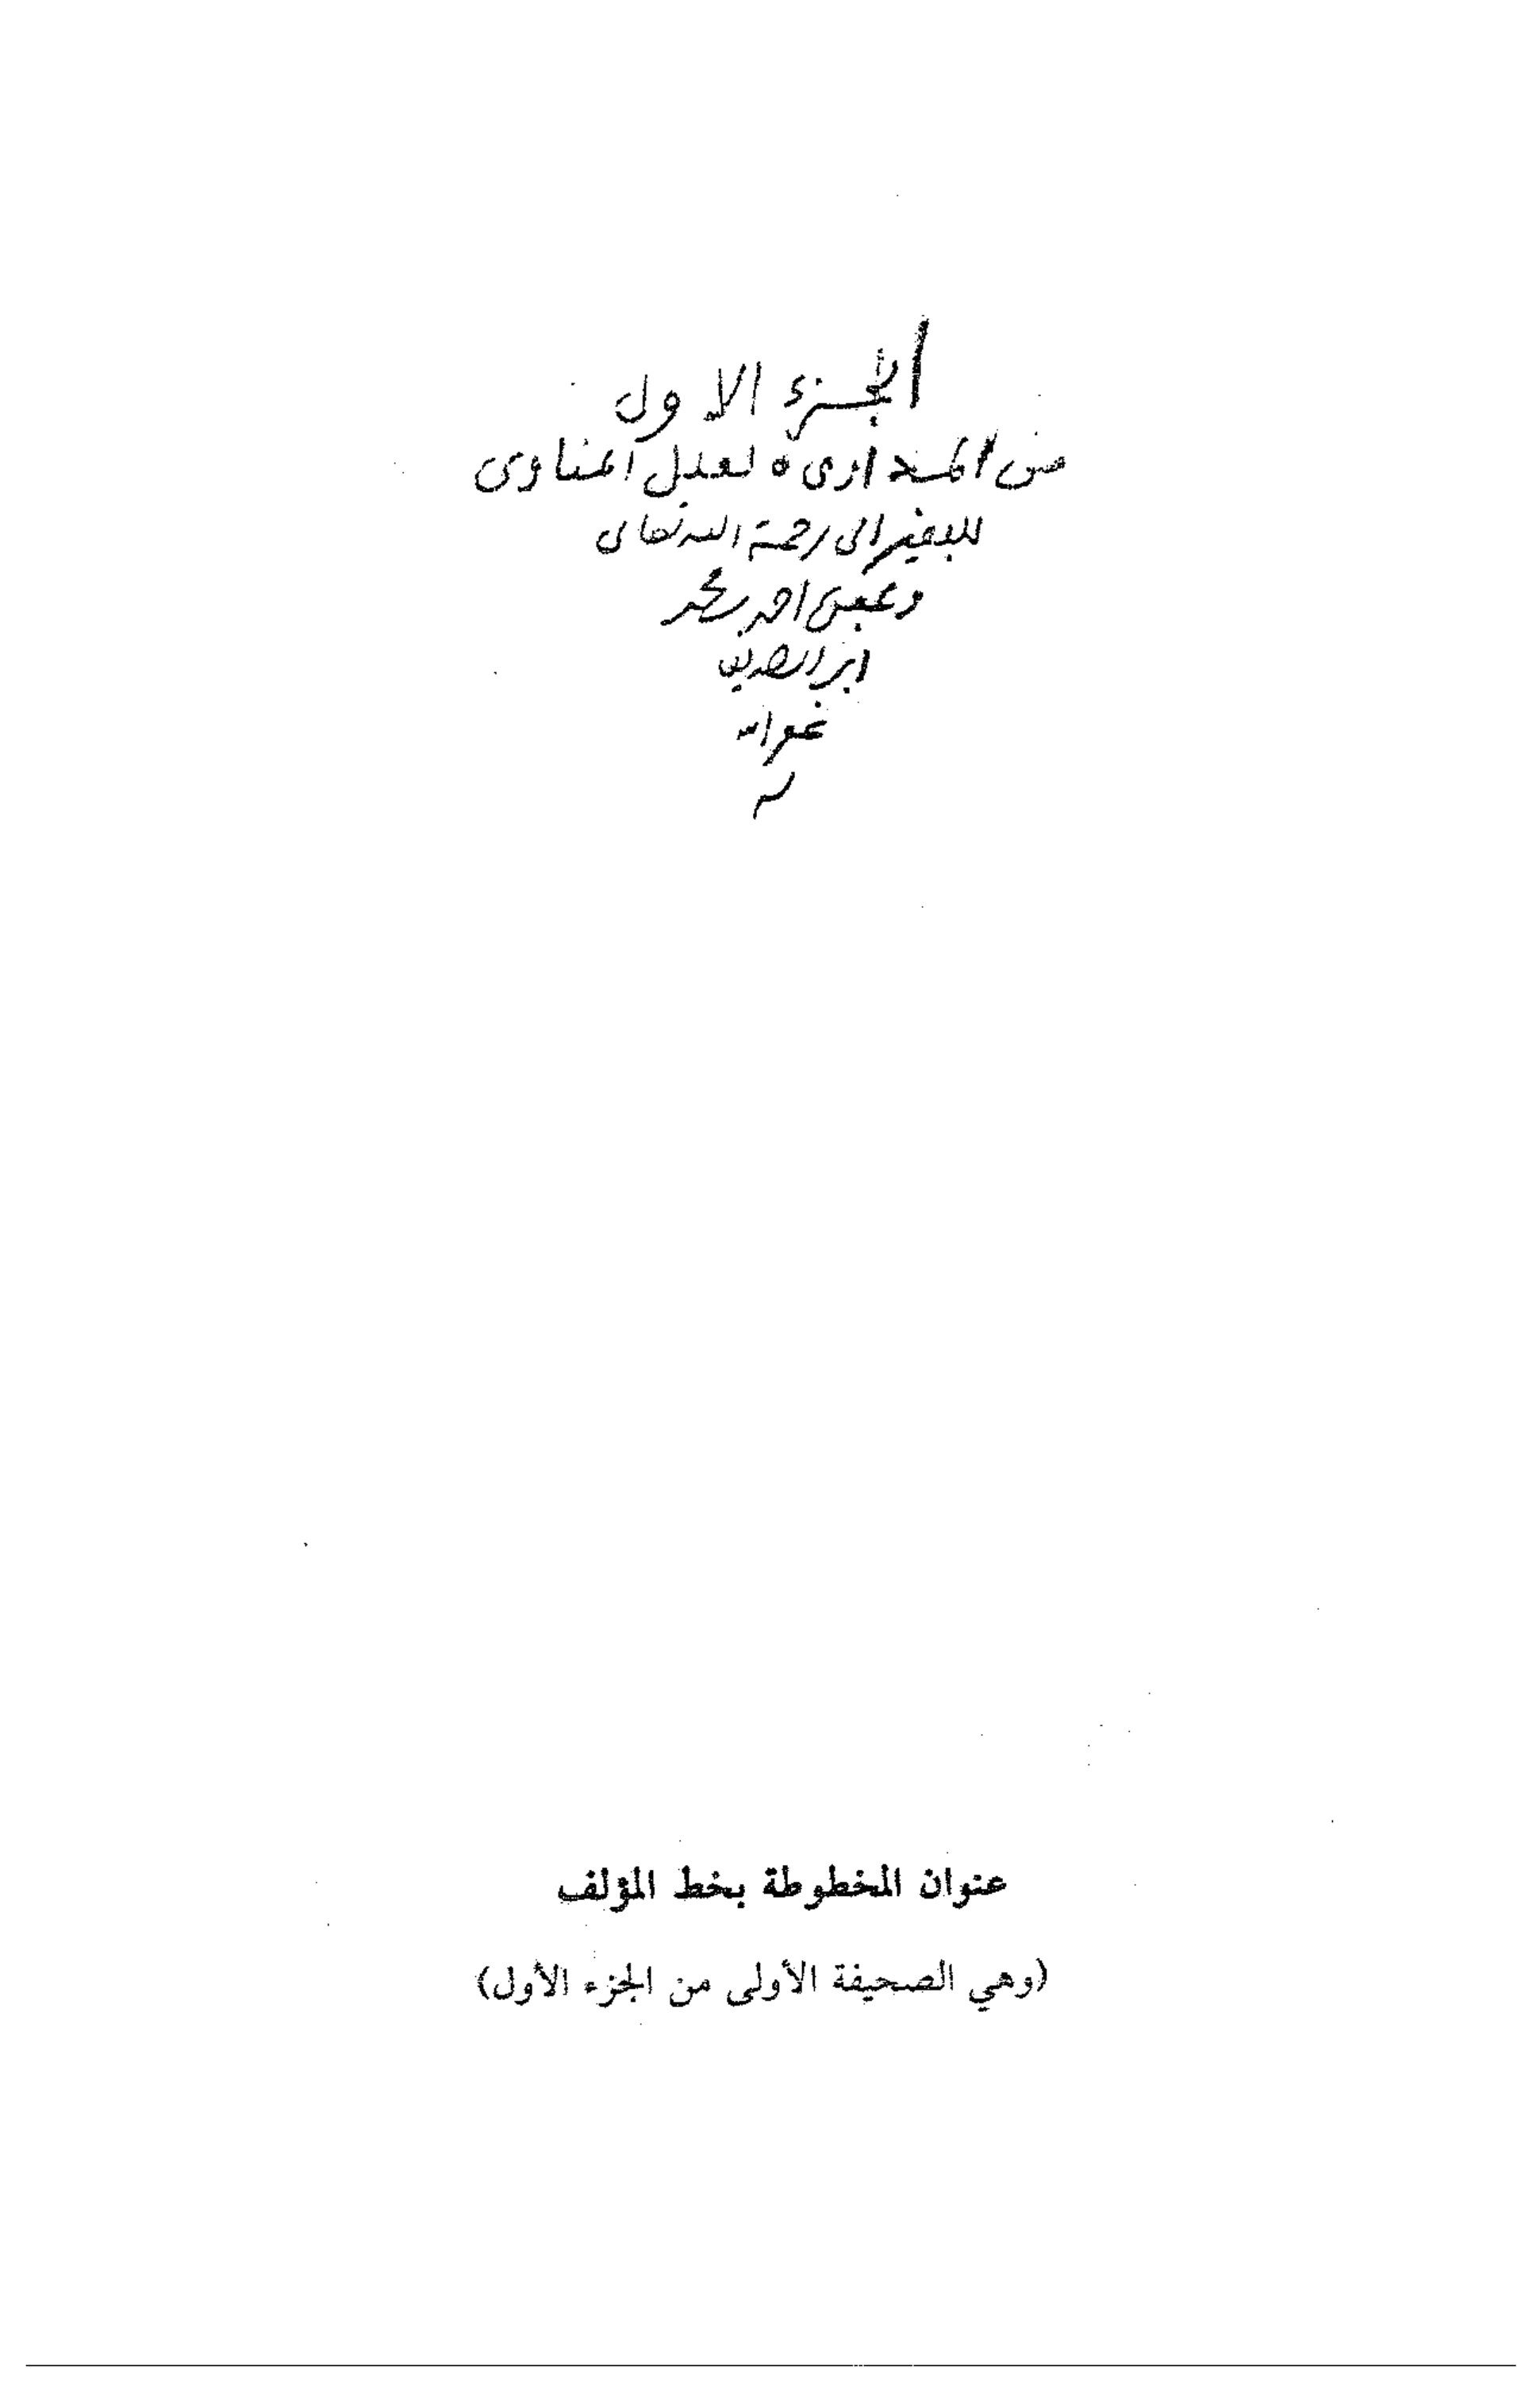 الجزء الاول
من المداوى ه لعلل المناوى
للفقير الى رحمة الله تعالى
وعفوه احمد بن محمد
ابن الصديق
غفر الله
له
عنوان المخطوطة بخط المؤلف
(وهي الصحيفة الأولى من الجزء الأول)